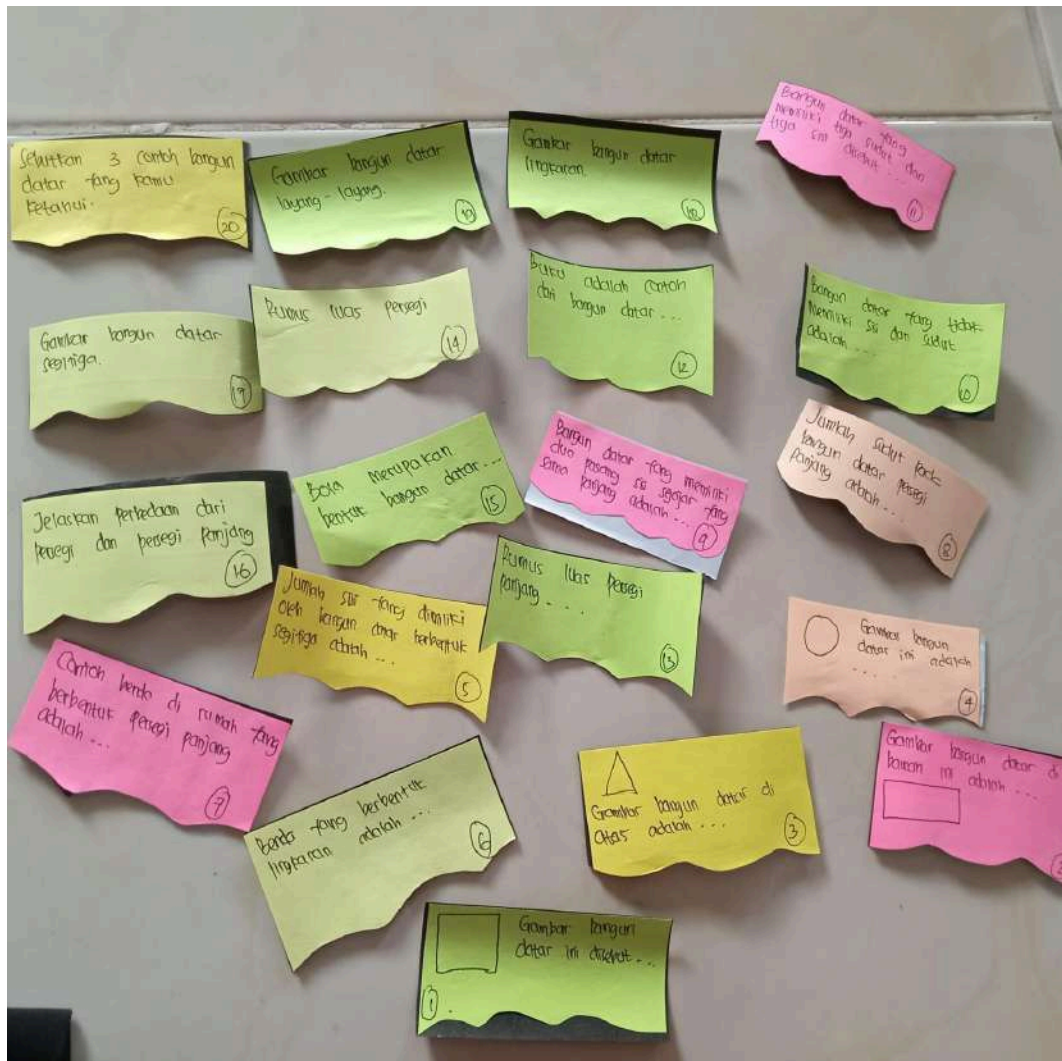 Sebutkan 3 contoh bangun
datar yang kamu
ketahui.
20
Gambar bangun datar
layang-layang.
19
Gambar bangun datar
lingkaran.
Bangun datar yang
memiliki tiga sudut dan
tiga sisi disebut ...
11
Gambar bangun datar
segitiga.
Rumus luas persegi
14
Buku adalah contoh
dari bangun datar ...
12
Bangun datar yang tidak
memiliki sisi dan sudut
adalah ....
10
Jelaskan perbedaan dari
persegi dan persegi panjang
16
Bola merupakan
bentuk bangun datar ...
15
Bangun datar yang memiliki
dua pasang sisi sejajar yang
sama panjang adalah ...
9
Jumlah sudut pada
bangun datar persegi
panjang adalah ...
8
Jumlah sisi yang dimiliki
oleh bangun datar berbentuk
segitiga adalah ...
5
Rumus luas persegi
panjang ....
13
Gambar bangun
datar ini adalah
....
4
Contoh benda di rumah yang
berbentuk persegi panjang
adalah ...
7
Benda yang berbentuk
lingkaran adalah ...
6
Gambar bangun datar di
atas adalah ...
3
Gambar bangun datar di
bawah ini adalah ...
2
Gambar bangun
datar ini disebut ...
1